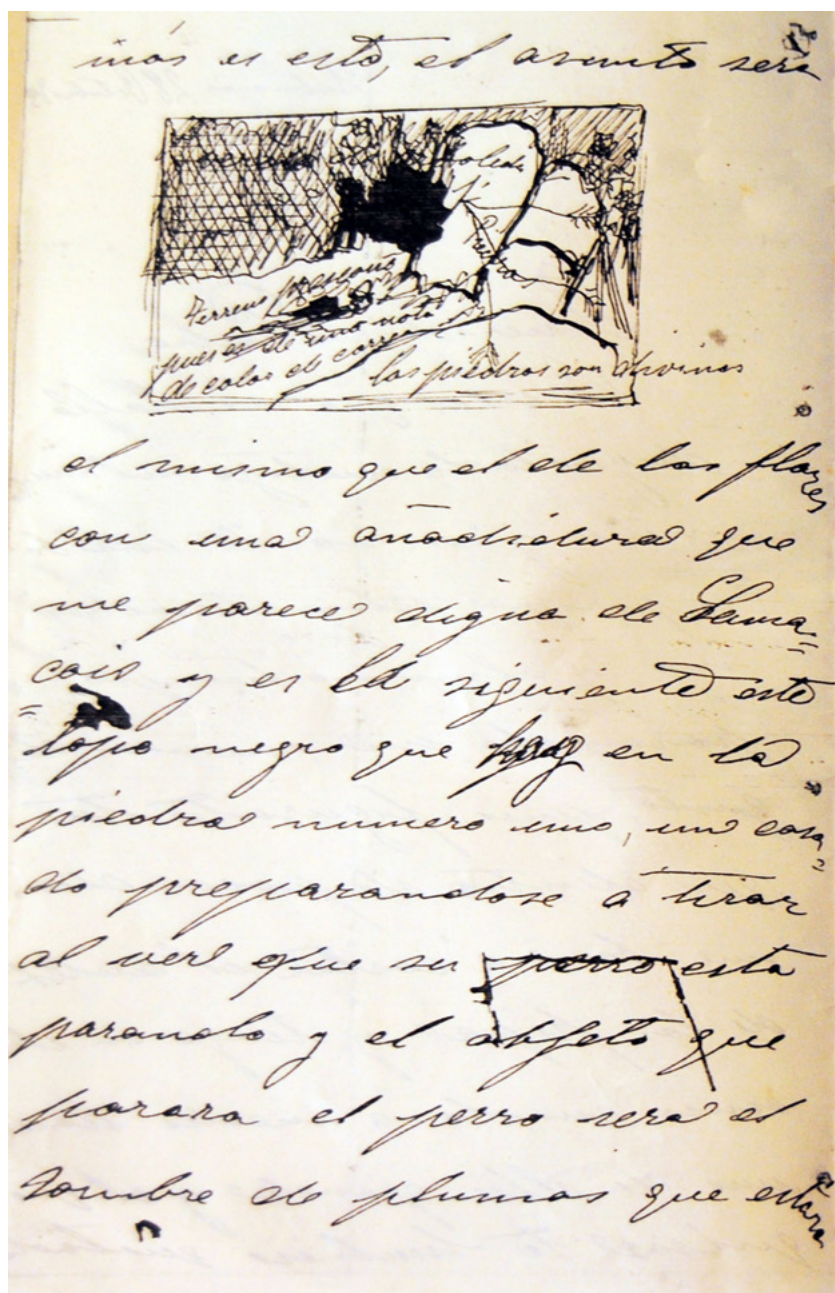 más es esto, el asunto sera
Soledad
y
Ruinas
Terreno
pues es de una nota
de color de
las piedras son divinas
el mismo que el de las flores
con una añadidura que
me parece digna de Lama=
=cois y es la siguiente este
topo negro que hay en la
piedra numero uno, un casa=
do preparandose á tirar
al ver que su perro esta
parando y el objeto que
parara el perro sera el
sombre de plumas que estara